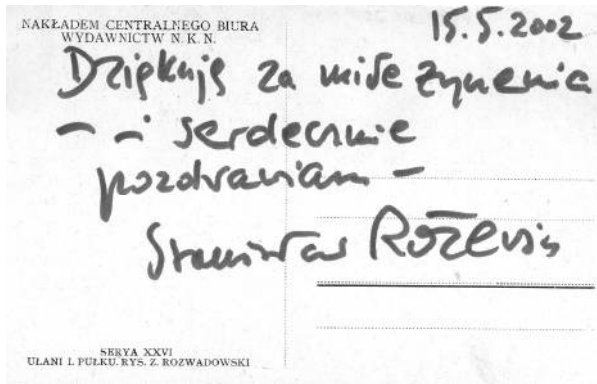 NAKŁADEM CENTRALNEGO BIURA
WYDAWNICTW N. K. N.
15.5.2002
Dziękuję za miłe życzenia
– i serdecznie
pozdrawiam –
Stanisław Różewicz
SERYA XXVI
UŁANI I. PUŁKU. RYS. Z. ROZWADOWSKI